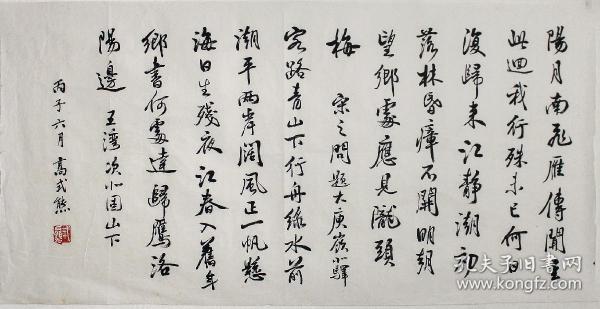 陽月南飛雁傳聞至
此迴我行殊未已何日
復歸来江静潮初
落林昏瘴不開明朝
望鄉處應見隴頭
梅 宋之問題大庾嶺北驛
客路青山下行舟綠水前
潮平兩岸闊風正一帆懸
海日生殘夜江春入舊年
鄉書何處達歸鴈洛
陽邊 王灣次北固山下
丙子六月 高式熊
孔夫子旧书网
www.kongfz.com